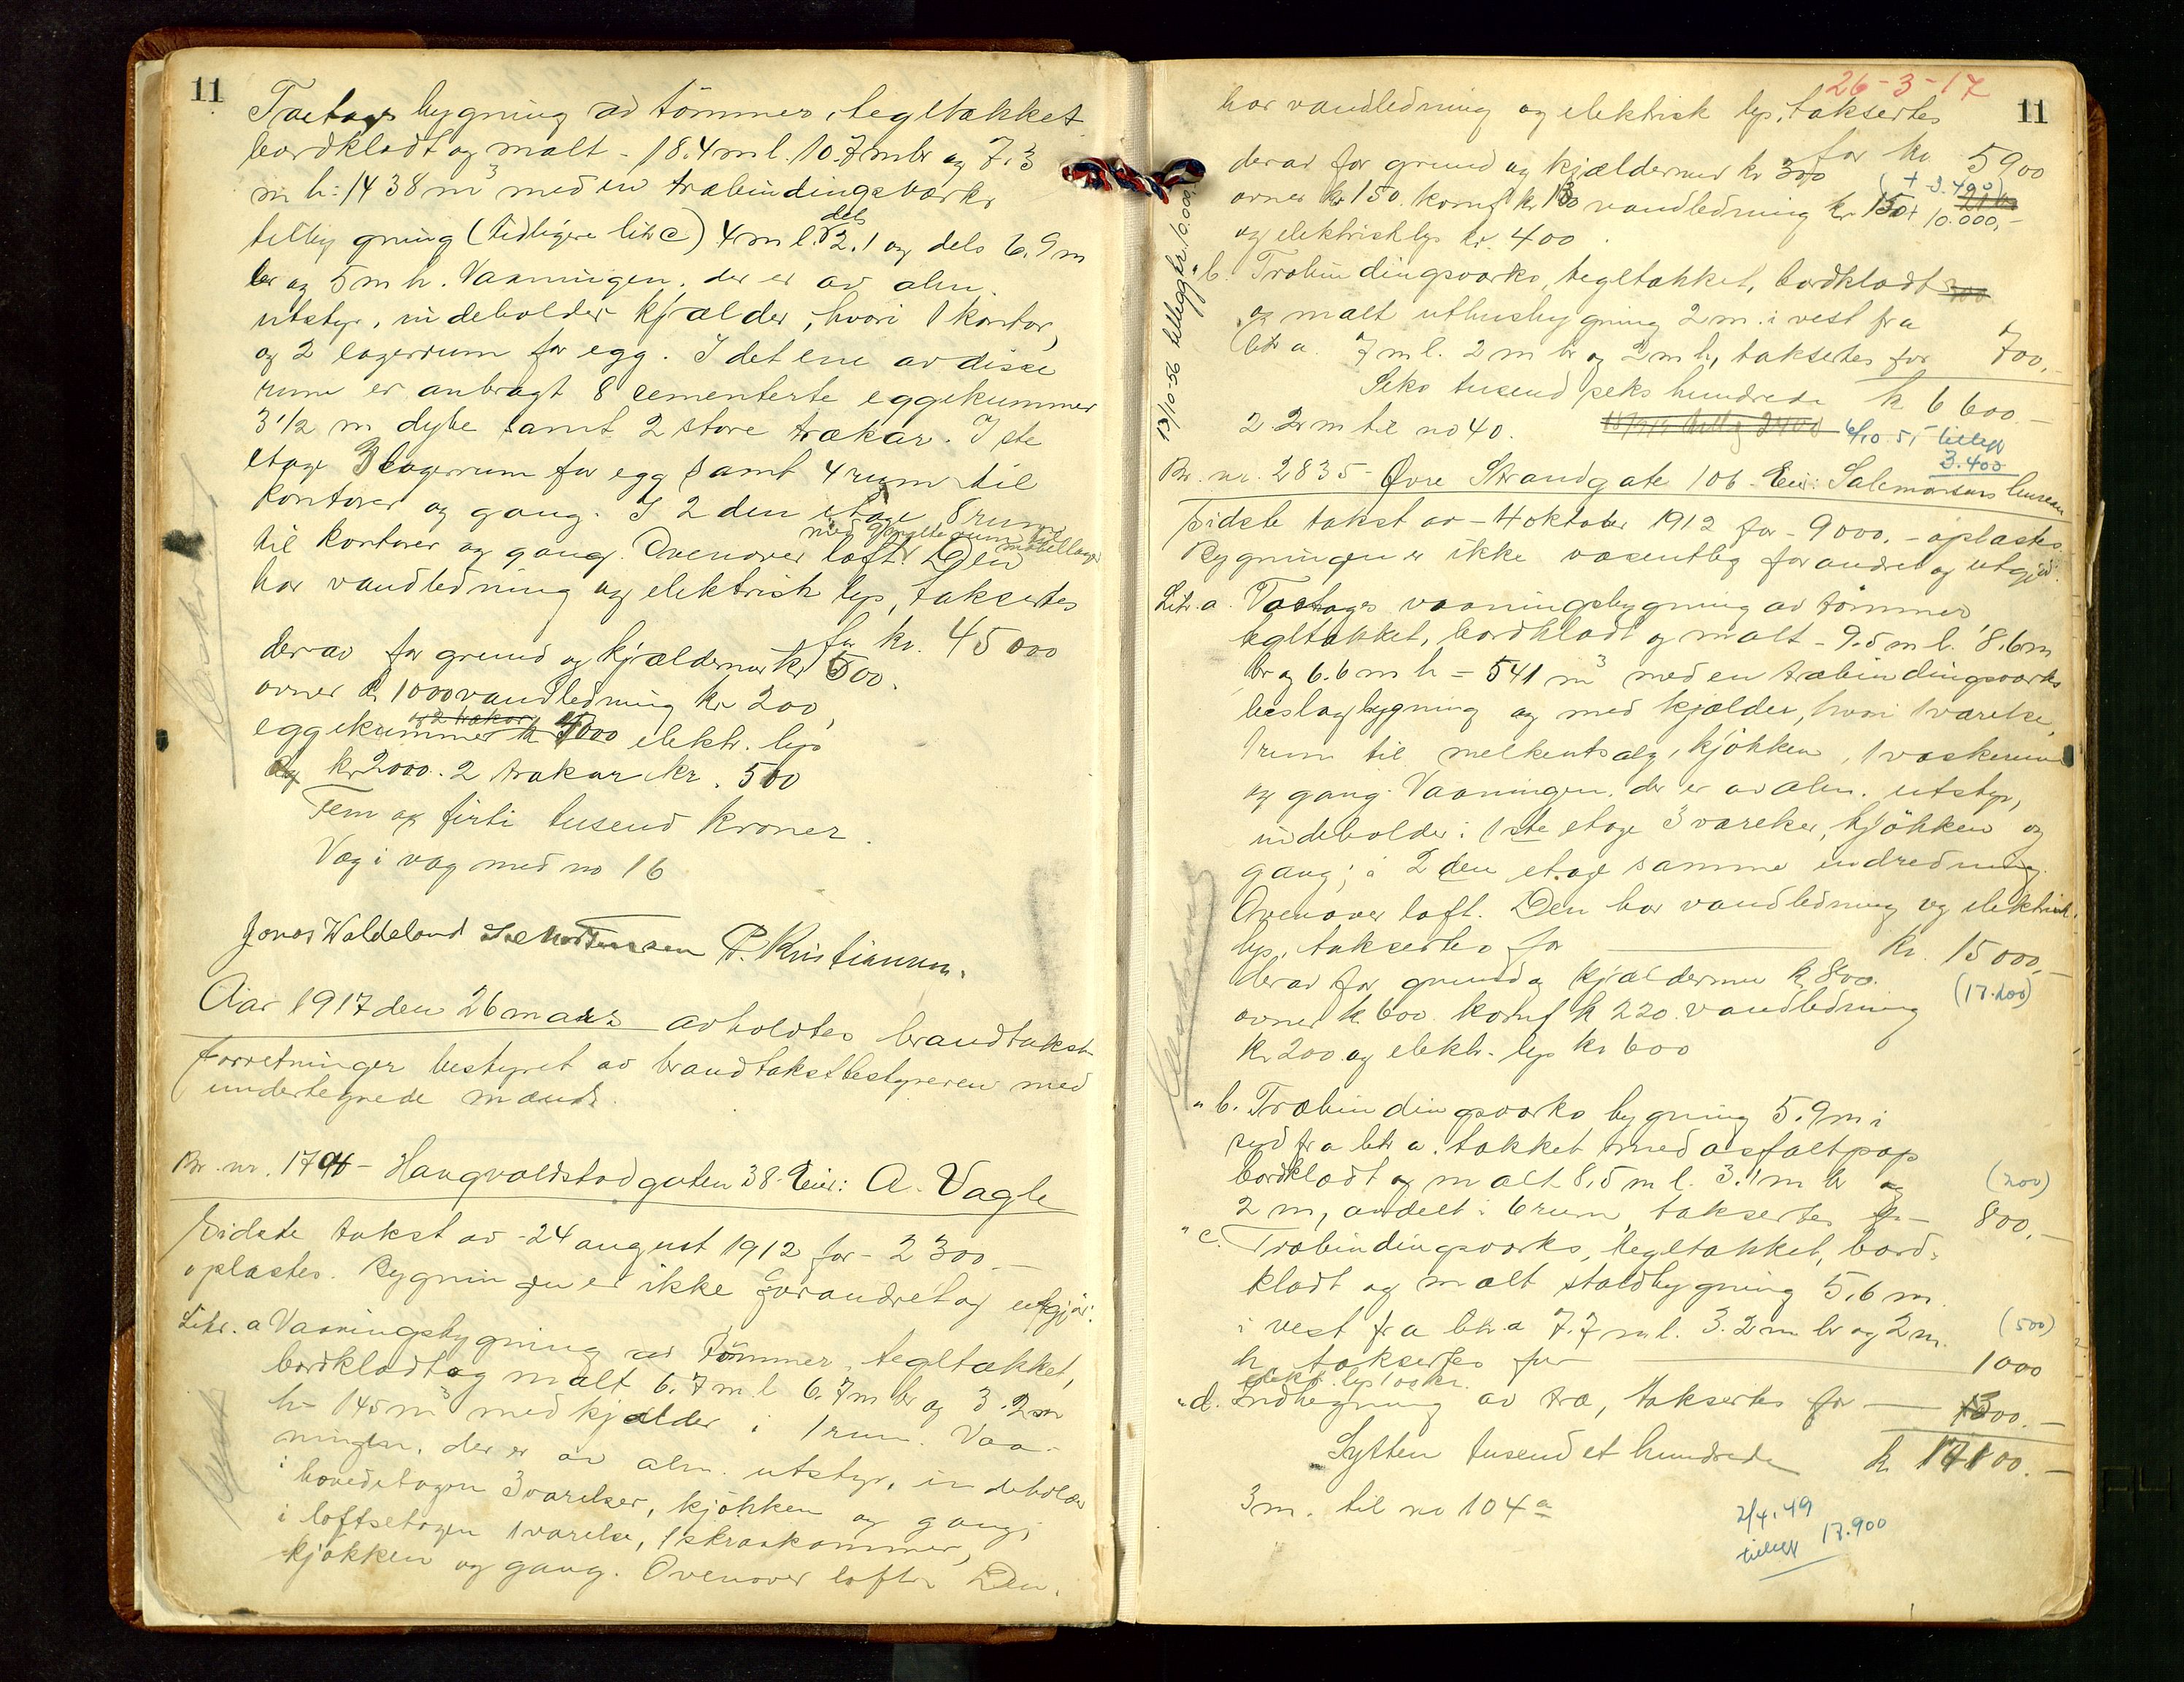 11
Toetages bygning av tömmer, tegltækket
bordklædt og malt - 18.4 m l. 10.7 m br og 7.3
m h: 1438 m³ med en træbindingsværks
tilbygning (tidligere litr c) 4 m l. dels 2.1 og dels 6.9 m
br og 5 m h. Vaaningen, der er av alm.
utstyr, indeholder kjælder, hvori 1 kontor,
og 2 lagerrum for egg. I det ene av disse
rum er anbragt 8 cementerte eggekummer
3 1/2 m dybe samt 2 store trækar. I ste
etage 3 lagerrum for egg samt 4 rum til
kontorer og gang. I 2 den etage 8 rum
til kontorer og gang. Ovenover loft. Den
har vandledning og elektrisk lys, taksertes
for kr. 45 000
derav for grund og kjældermur kr 500.
ovner kr 1000 vandledning kr 200,
eggekummer og 2 trækar kr 4000 elektr. lys
kr 2000. 2 trækar kr. 500
Fem og firti tusend kroner.
Væg i væg med no 16
Jonas Waldeland P. Kristiansen.
Aar 1917 den 26 mars avholdtes brandtakst-
forretninger bestyret av brandtakstbestyreren med
undertegnede mænd.
Br. nr. 1794 - Haugvaldstadgaten 38. Eier: A. Vagle
Sidste takst av - 24 august 1912 for - 2300.-
oplæstes. Bygningen er ikke forandret og utgjør:
Litr. a Vaaningsbygning av tömmer, tegltækket,
bordklædt og malt 6.7 m l 6.7 m br og 3.2 m
h - 145 m³ med kjælder i 1 rum. Vaa-
ningen, der er av alm. utstyr, indeholder
i hovedetagen 3 værelser, kjøkken og gang;
i loftsetagen 1 værelse, 1 skraakammer,
kjøkken og gang. Ovenover loft. Den.
26-3-17
11
har vandledning og elektrisk lys, taksertes
for kr. 5900
derav for grund og kjældermur kr 300
ovner kr 150. komf kr 130 vandledning kr 150 + 10.000,-
og elektrisk lys kr. 400.
13/10-56 tillegg kr. 10.000,-
" b. Træbindingsværks, tegltækket, bordklædt
og malt uthusbygning 2 m. i vest fra
litr a 7 m l. 2 m br og 2 m h, taksertes for 700,-
Seks tusend seks hundrede kr 6 600.-
2.2 m til no 40. 6/10 51 tillegg
3.400
Br. nr. 2835 - Øvre Strandgate 106 - Eier:
Sidste takst av - 4 oktober 1912 for - 9000. - oplæstes.
Bygningen er ikke væsentlig forandret og utgjør:
Litr. a. Toetages vaaningsbygning av tömmer
tegltækket, bordklædt og malt - 9.5 m l. 8.6 m
br og 6.6 m h = 541 m³ med en træbindingsværks
beslagbygning og med kjælder, hvori 1 værelse,
1 rum til melkeutsalg, kjökken, 1 vaskerum
og gang. Vaaningen, der er av alm. utstyr,
indeholder i 1 ste etage 3 værelser, kjökken og
gang; i 2 den etage samme indredning.
Ovenover loft. Den har vandledning og elektrisk
lys, taksertes for kr. 15 000,-
derav for grund og kjældermur kr 800.
(17.200)
ovner kr. 600. komf kr 220. vandledning
kr 200 og elektr. lys kr 600
" b. Træbindingsværks bygning 5.9 m i
syd fra litr a. tækket med asfaltpap
bordklædt og malt 8.5 m l. 3.1 m br og
(200)
2 m, avdelt i 6 rum, taksertes for - 800.-
" c. Træbindingsværks, tegltækket, bord-
klædt og malt staldbygning 5.6 m.
i vest fra litr. a 7.7 m l. 3.2 m br og 2 m.
(500)
h. taksertes for 1000
" d. Indhegning av træ, taksertes for 300.-
Sytten tusend et hundrede kr 17100.-
3 m. til no 104 a
2/4.49
tillegg 17.900